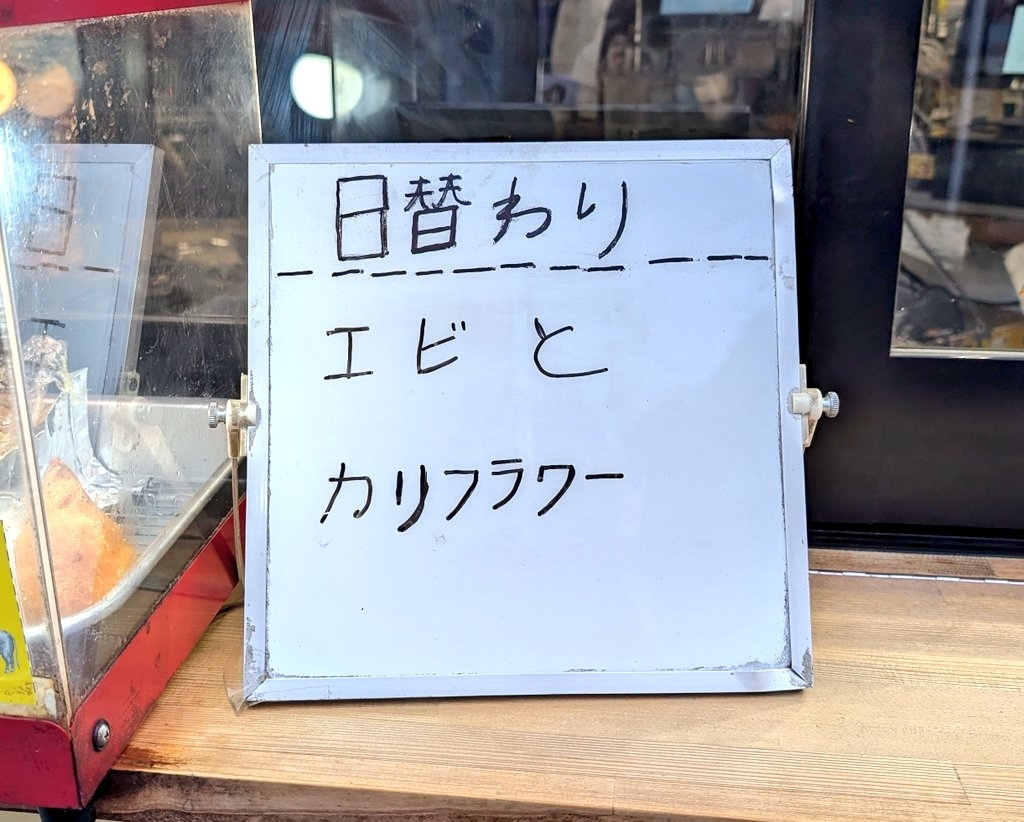 日替わり
エビと
カリフラワー